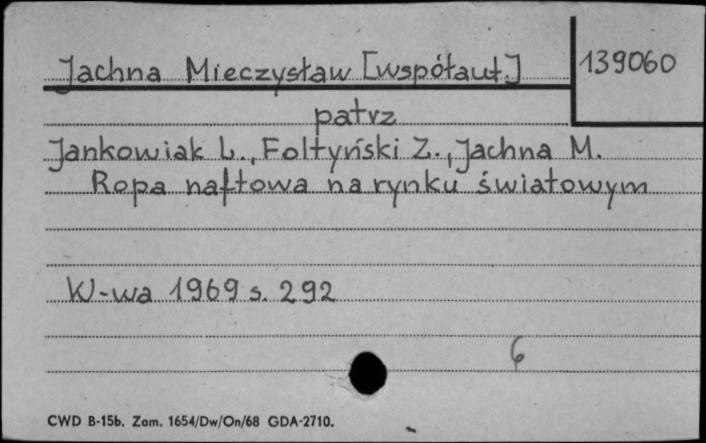 Jachna Mieczysław [współaut.] 139060
patrz
Jankowiak L., Fołtyński Z., Jachna M.
Ropa naftowa na rynku światowym
W-wa 1969 s. 292
6
CWD B-15b. Zam. 1654/Dw/On/68 GDA-2710.